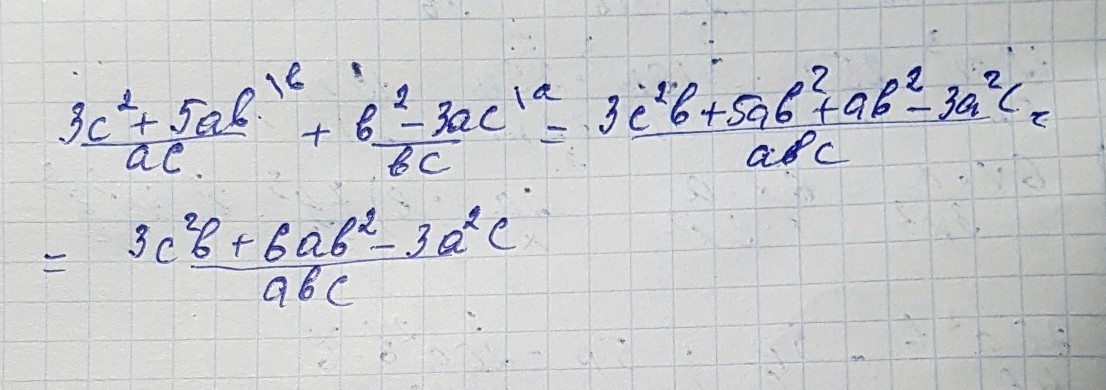 (3c² + 5ab)/(ac) \b + (b² - 3ac)/(bc) \a = (3c²b + 5ab² + ab² - 3a²c)/(abc) =
= (3c²b + 6ab² - 3a²c)/(abc)